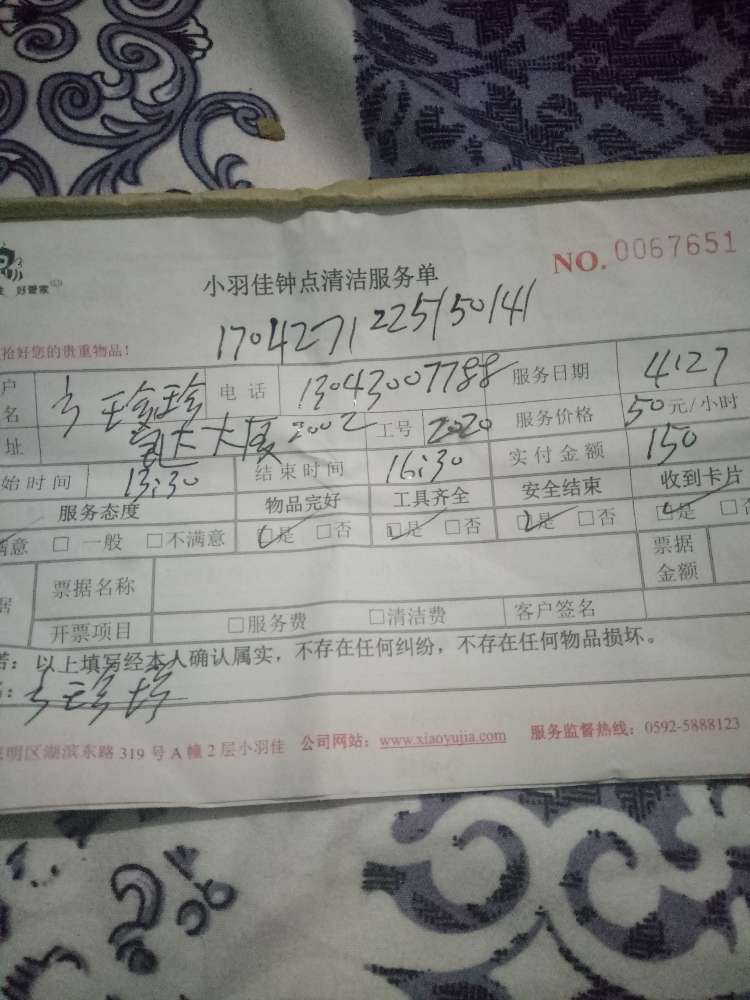 NO. 0067651
好管家
小羽佳钟点清洁服务单
1704271225150141
拾好您的贵重物品!
户名 珍珍 电话 13043007788 服务日期 4.27
址 大厦2002 工号 2020 服务价格 50元/小时
始时间 13:30 结束时间 16:30 实付金额 150
服务态度 物品完好 工具齐全 安全结束 收到卡片
满意 □ 一般 □不满意 □是 □否 □是 □否 □是 □否 □是
据 票据名称 票据金额
开票项目 □服务费 □清洁费 客户签名
以上填写经本人确认属实，不存在任何纠纷，不存在任何物品损坏。
珍珍
明区湖滨东路 319 号 A 幢 2 层小羽佳 公司网站：www.xiaoyujia.com 服务监督热线：0592-5888123